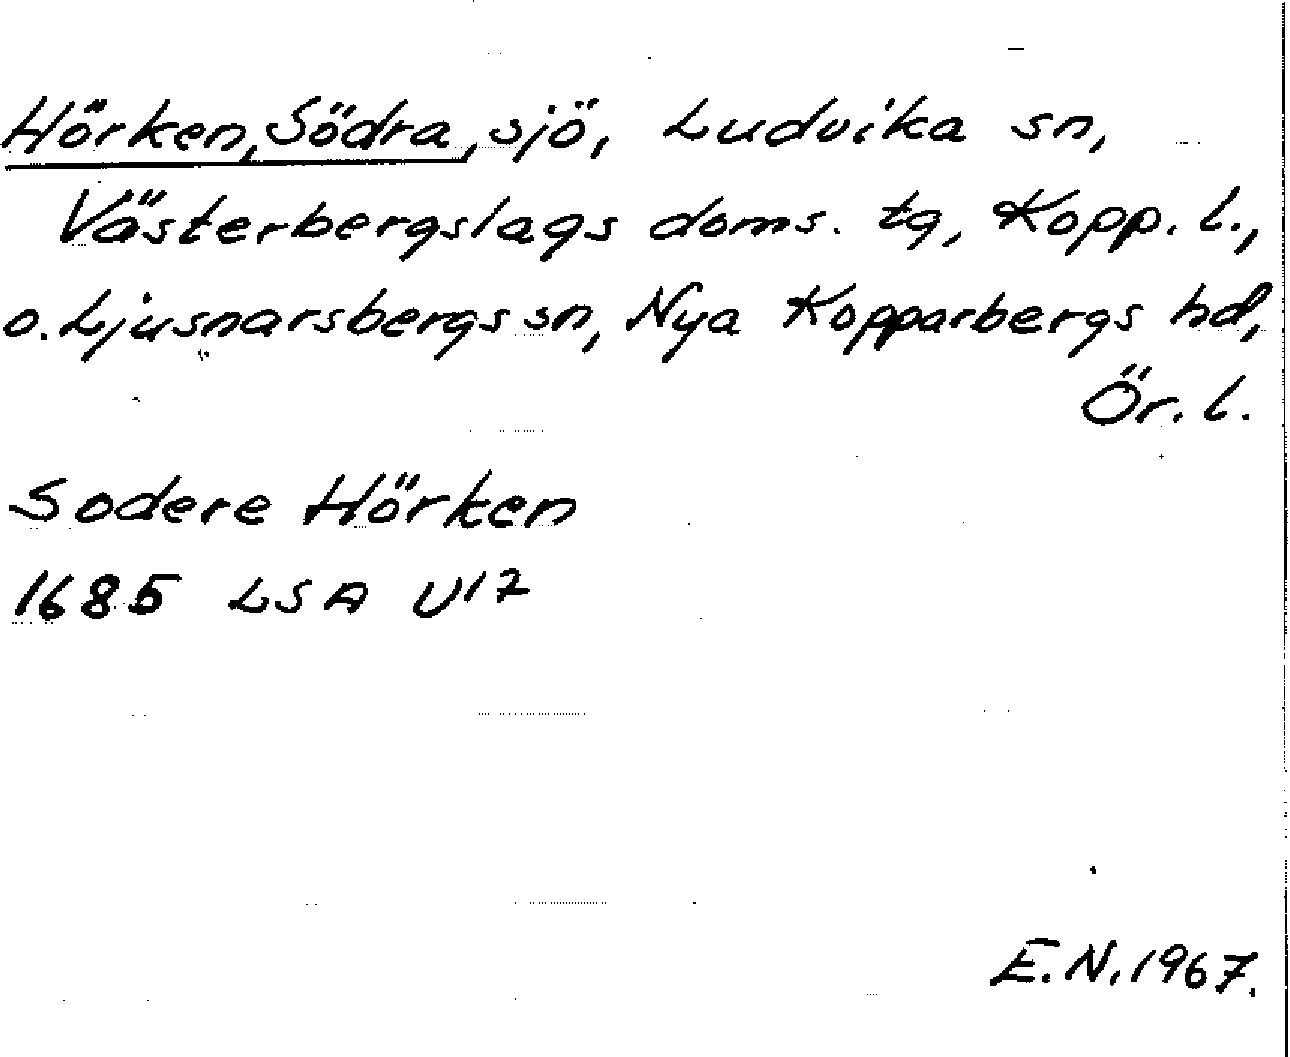 Hörken, Södra, sjö, Ludvika sn,
Västerbergslags doms. tg, Kopp. l.,
o. Ljusnarsbergs sn, Nya Kopparbergs hd,
Ör. l.
Sodere Hörken
1685 LSA U17
E.N. 1967.